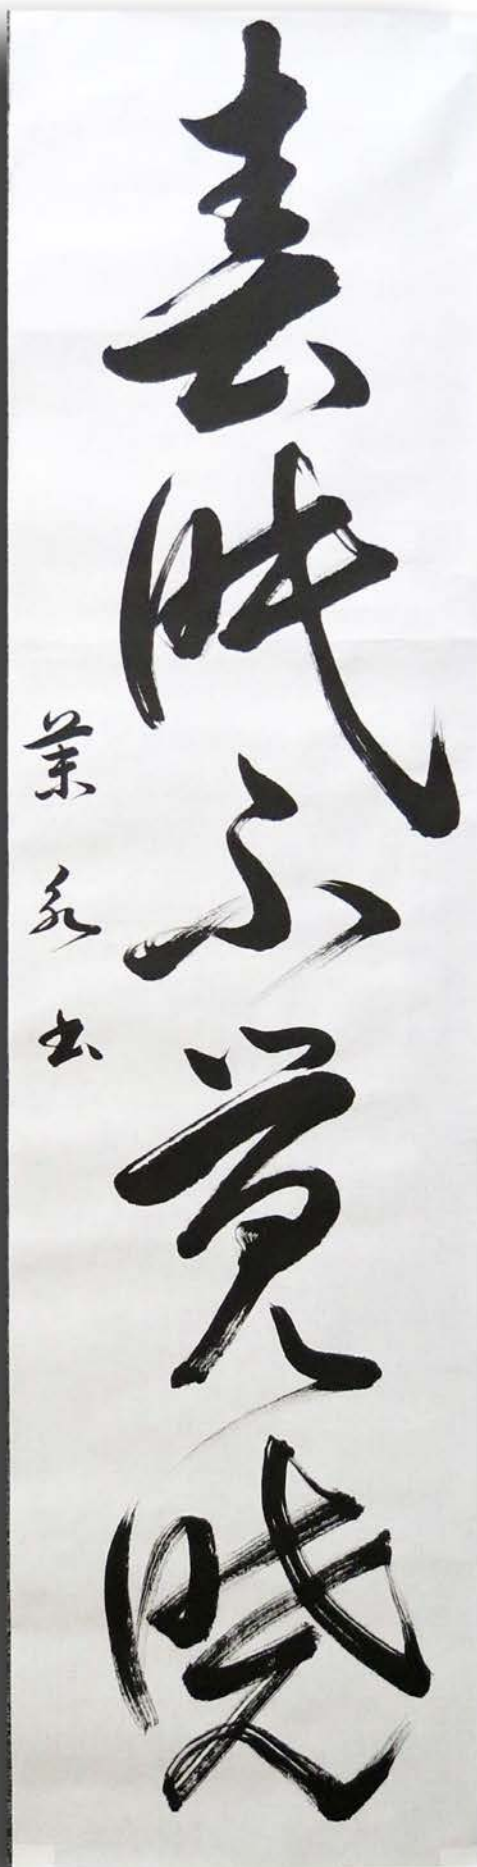 春眠不覚暁
永書